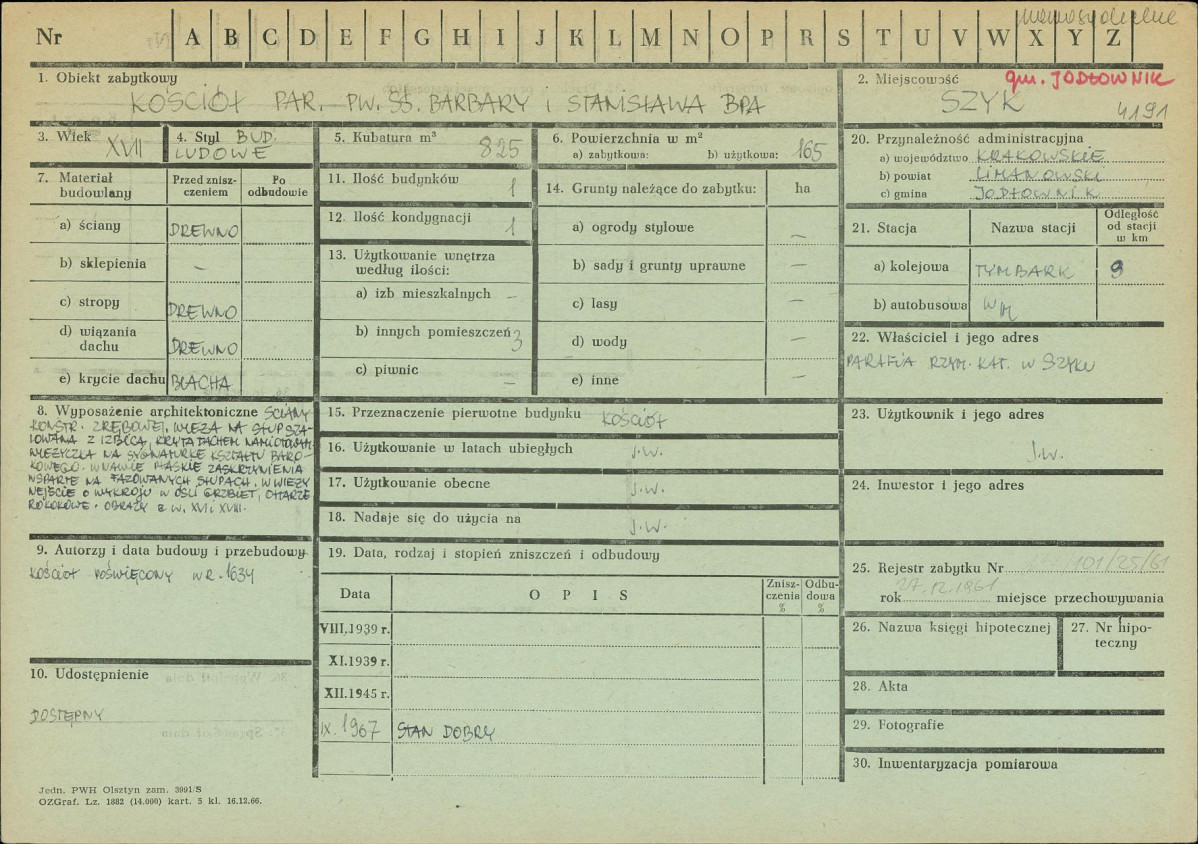 Nr A B C D E F G H I J K L M N O P R S T U V W X Y Z
1. Obiekt zabytkowy
KOŚCIÓŁ PAR. PW. ŚŚ. BARBARY i STANISŁAWA BPA
2. Miejscowość
gm. JODŁOWNIK
SZYK
4191
3. Wiek XVII
4. Styl BUD. LUDOWE
5. Kubatura m³ 825
6. Powierzchnia w m²
a) zabytkowa: b) użytkowa: 165
7. Materiał budowlany
Przed zniszczeniem
Po odbudowie
a) ściany DREWNO
b) sklepienia –
c) stropy DREWNO
d) wiązania dachu DREWNO
e) krycie dachu BLACHA
8. Wyposażenie architektoniczne ŚCIANY
KONSTR. ZRĘBOWEJ, WIEŻA NA SŁUP SZA-
LOWANA Z IZBICĄ, KRYTA DACHEM NAMIOTOWYM
WIEŻYCZKA NA SYGNATURKĘ KSZTAŁTU BARO-
KOWEGO. W NAWIE PŁASKIE ZASKRZYNIENIA
WSPARTE NA FAZOWANYCH SŁUPACH. W WIEŻY
WEJŚCIE O WYKROJU W OŚLI GRZBIET, OŁTARZE
ROKOKOWE. OBRAZY z W. XVI i XVIII.
9. Autorzy i data budowy i przebudowy
KOŚCIÓŁ POŚWIĘCONY W R. 1634
10. Udostępnienie
DOSTĘPNY
11. Ilość budynków 1
12. Ilość kondygnacji 1
13. Użytkowanie wnętrza według ilości:
a) izb mieszkalnych –
b) innych pomieszczeń 3
c) piwnic –
14. Grunty należące do zabytku: ha
a) ogrody stylowe –
b) sady i grunty uprawne –
c) lasy –
d) wody –
e) inne –
15. Przeznaczenie pierwotne budynku KOŚCIÓŁ
16. Użytkowanie w latach ubiegłych J.W.
17. Użytkowanie obecne J.W.
18. Nadaje się do użycia na J.W.
19. Data, rodzaj i stopień zniszczeń i odbudowy
Data OPIS Zniszczenia % Odbudowa %
VIII.1939 r.
XI.1939 r.
XII.1945 r.
IX. 1967 STAN DOBRY
20. Przynależność administracyjna
a) województwo KRAKOWSKIE
b) powiat LIMANOWSKI
c) gmina JODŁOWNIK
21. Stacja Nazwa stacji Odległość od stacji w km
a) kolejowa TYMBARK 9
b) autobusowa W M
22. Właściciel i jego adres
PARAFIA RZYM. KAT. W SZYKU
23. Użytkownik i jego adres
J.W.
24. Inwestor i jego adres
25. Rejestr zabytku Nr 101/25/61
rok 27.12.1961 miejsce przechowywania
26. Nazwa księgi hipotecznej
27. Nr hipoteczny
28. Akta
29. Fotografie
30. Inwentaryzacja pomiarowa
Jedn. PWH Olsztyn zam. 3991/S
OZGraf. Lz. 1882 (14.000) kart. 5 kl. 16.12.66.